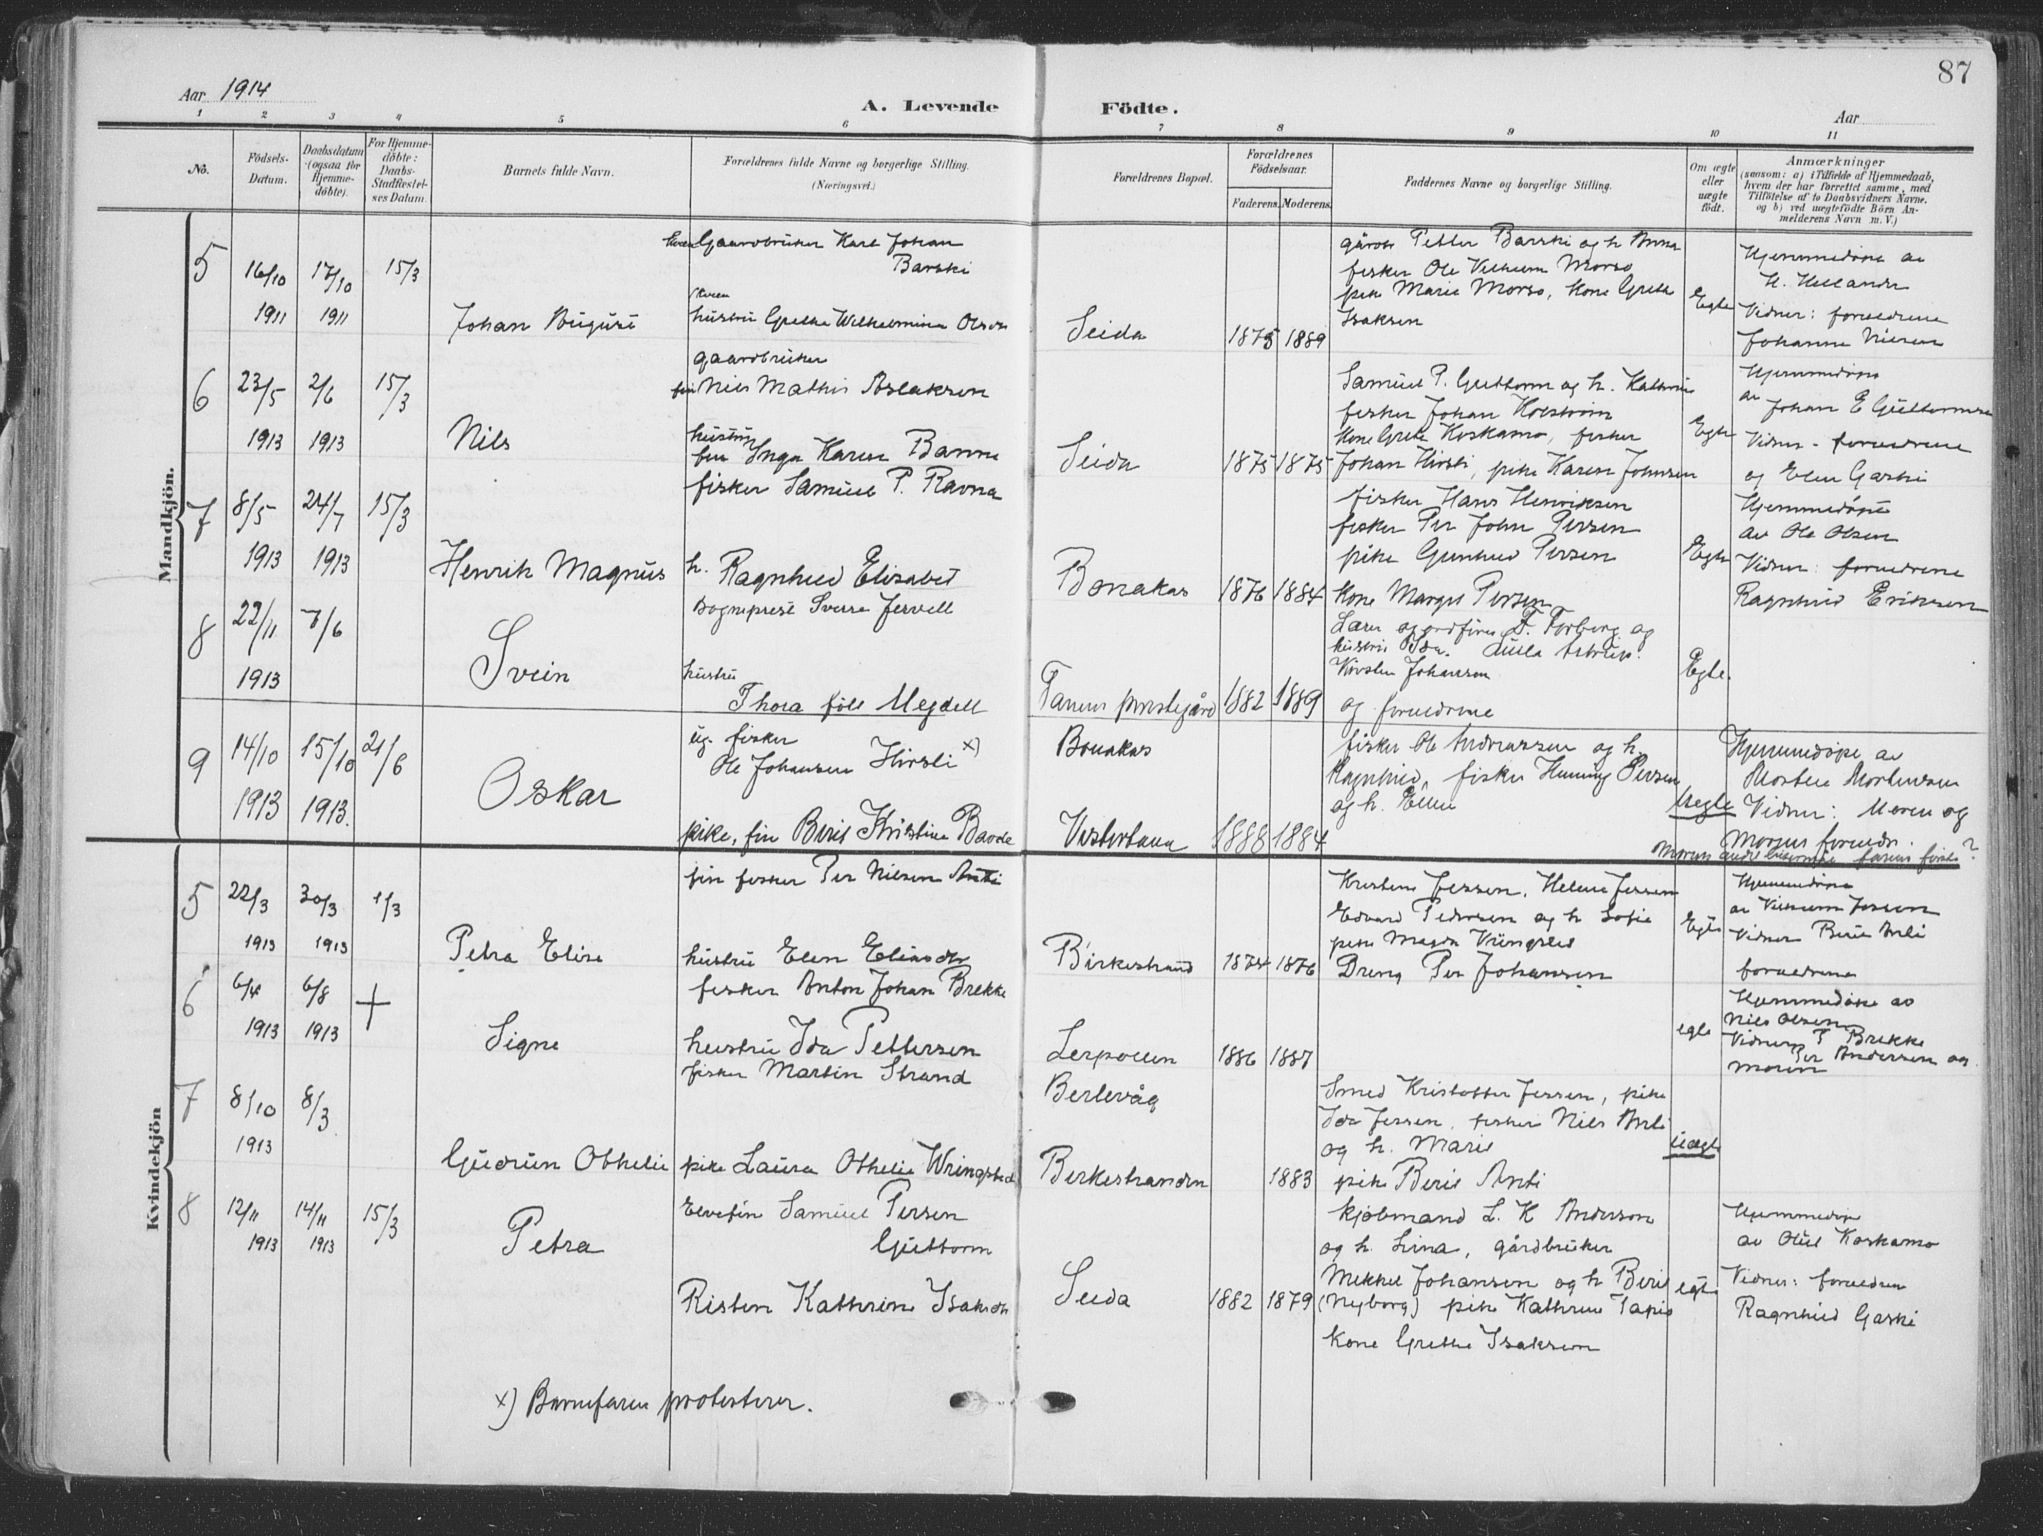 87
Aar 1914
A. Levende Födte.
Aar
1 2 3 4 5 6 7 8 9 10 11
No.
Födsels-Datum.
Daabsdatum (ogsaa for Hjemme-döbte).
For Hjemme-döbte: Daabs-Stadfæstel-ses Datum.
Barnets fulde Navn.
Forældrenes fulde Navne og borgerlige Stilling. (Næringsvei.)
Forældrenes Bopæl.
Forældrenes Födselsaar.
Faderens. Moderens.
Faddernes Navne og borgerlige Stilling.
Om ægte eller uægte födt.
Anmærkninger
(saasom: a) i Tilfælde af Hjemmedaab,
hvem der har forrettet samme, med
Tilföielse af to Daabsvidners Navne,
og b) ved uægtefödte Börn An-
melderens Navn m. V.)
Mandkjön.
5
16/10 1911
17/10 1911
15/3
Johan August
kvæn Gaardbruker Karl Johan
Barski
kvæn
hustru Grethe Wilhelmina Olsdr
Seida
1875 1889
gårdbr Petter Barski og h Anna
fisker Ole Vilhelm Morso
pike Marie Morso, kone Grete
Isaksen
Egte
Hjemmedøpt av
H. Hellander
Vidner: forældrene
Johanne Nilsen
6
23/5 1913
2/6 1913
15/3
Nils
gaardbruker
fin Nils Mathis Aslaksen
hustru
fin Inga Karen Banne
Seida
1875 1875
Samuel P. Guttorm og h. Kathrine
fisker Johan Holstrøm
kone Grete Koskamo, fisker
Johan Hirsti, pike Karen Johnsen
Egte
Hjemmedøpt
av Johan E Guttormsen
Vidner - forældrene
og Elen Gaski
7
8/5 1913
24/7 1913
15/3
Henrik Magnus
fisker Samuel P. Ravna
h. Ragnhild Elisabet
Bonakas
1876 1884
fisker Hans Henriksen
fisker Per John Persen
pike Gunhild Persen
kone Margit Persen
Egte
Hjemmedøpt
av Ole Olsen
Vidner: forældrene
Ragnhild Eriksen
8
22/11 1913
7/6
Svein
Sogneprest Sverre Jervell
hustru
Thora født Mejdell
Tanens prestegård
1882 1889
Lærer og ordfører F. Forberg og
hustru Ida. Lulla Astrup.
Kirsten Johansen
og forældrene
Egte.
9
14/10 1913
15/10 1913.
21/6
Oskar
ug. fisker
Ole Johansen Hirsti x)
pike, fin Berit Kristine Baade
Bonakas
Vestertana
1888 1884
fisker Ole Andreassen og h.
Ragnhild, fisker Henning Persen
og h. Ellen
Uegte
Hjemmedøpt av
Morten Mortensen
Vidner: Moren og
Morens forældr.
Morens andet barn, farens første?
Kvindekjön
5
22/3 1913
30/3 1913
1/3
Petra Elise
fin fisker Per Nilsen Anti
hustru Elen Eliasdtr
Birkestrand
1874 1876
Kristens Jessen, Helene Jessen
Edvard Pedersen og h Sofie
pike Magda Vringsted
Dreng Per Johansen
Egte
Hjemmedøpt
av Vilhelm Jessen
Vidner Berit Anti
forældrene
6
6/4 1913
6/8 1913
+
Signe
fisker Anton Johan Brekke
hustru Ida Pettersen
Lerpollen
1886 1887
egte
Hjemmedøpt av
Nils Olsen
Vidner P Brekke
Per Andersen og
moren
7
8/10 1913
8/3
Gudrun Othelie
fisker Martin Strand
pike Laura Othelie Wringsted
Berlevåg
Birkestranden
1883
Smed Kristoffer Jessen, pike
Ida Jessen, fisker Nils Anti
og h. Marie
pike Berit Anti
uegte
8
12/11 1913
14/11 1913
15/3
Petra
Elvefin Samuel Persen
Guttorm
Risten Kathrine Isaksdtr
Seida
1882 1879
kjøbmand L. K Anderson
og h. Lina, gårdbruker
Mikkel Johansen og h Berit
(Nyborg) pike Kathrine Tapio
kone Grethe Isaksen
egte
Hjemmedøpt
av Oluf Koskamo
Vidner: forældrene
Ragnhild Gaski
x) Barnefaren protesterer.